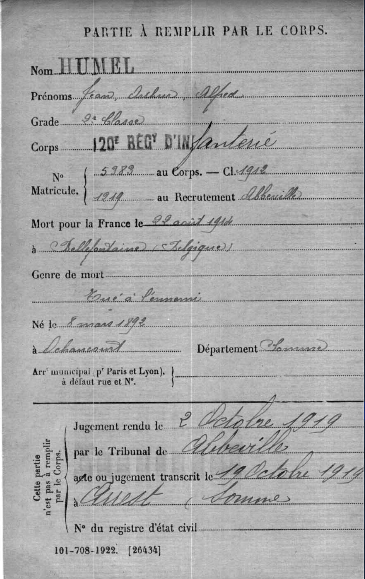 PARTIE À REMPLIR PAR LE CORPS.
Nom HUMEL
Prénoms Jean, Arthur, Alfred
Grade 2e Classe
Corps 120e RÉGt D'INfanterie
Nº 5989 au Corps. — Cl. 1912
Matricule. 1919 au Recrutement Abbeville
Mort pour la France le 22 août 1914
à Bellefontaine (Belgique)
Genre de mort
Tué à l'ennemi
Né le 8 mars 1892
à Ochancourt Département Somme
Arrt municipal (pr Paris et Lyon), à défaut rue et Nº.
Cette partie n'est pas à remplir par le Corps.
Jugement rendu le 2 Octobre 1919
par le Tribunal de Abbeville
acte ou jugement transcrit le 19 Octobre 1919
à Somme
Nº du registre d'état civil
101-708-1922. [26434]